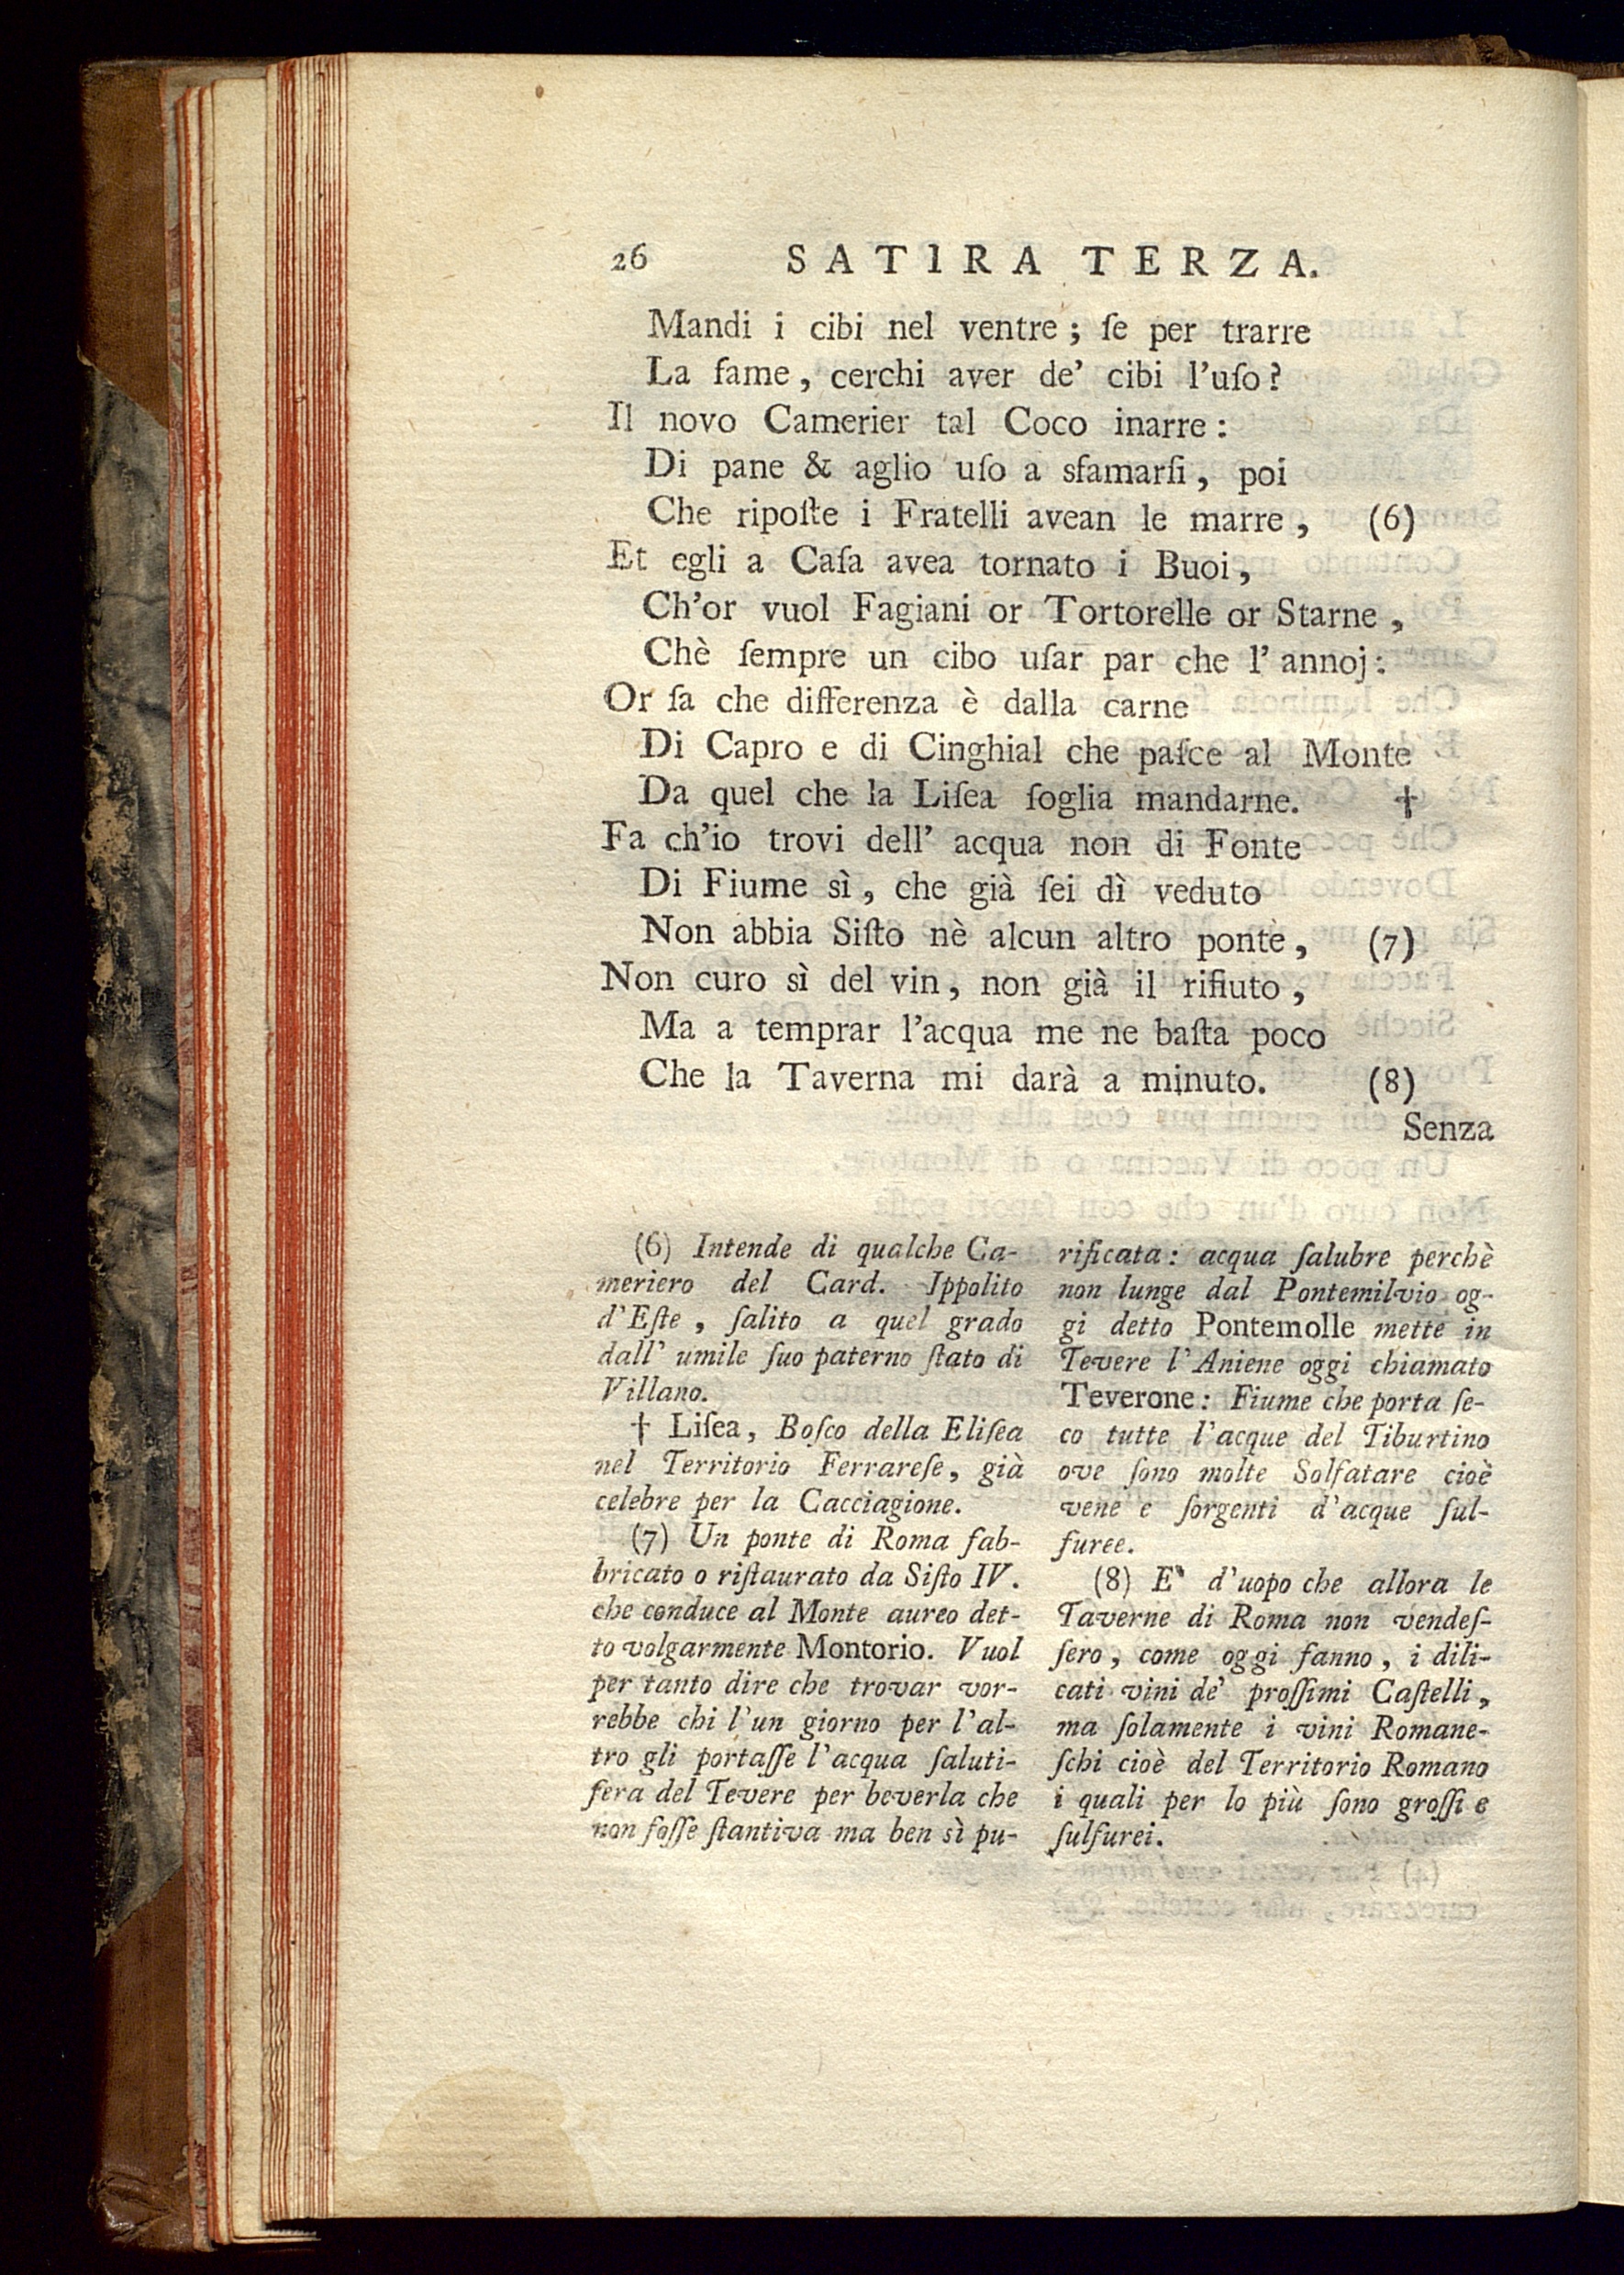 26 SATIRA TERZA.
Mandi i cibi nel ventre; ſe per trarre
La fame, cerchi aver de' cibi l'uſo?
Il novo Camerier tal Coco inarre:
Di pane & aglio uſo a sfamarſi, poi
Che ripoſte i Fratelli avean le marre, (6)
Et egli a Caſa avea tornato i Buoi,
Ch'or vuol Fagiani or Tortorelle or Starne,
Chè ſempre un cibo uſar par che l'annoj:
Or ſa che differenza è dalla carne
Di Capro e di Cinghial che paſce al Monte
Da quel che la Liſea ſoglia mandarne. †
Fa ch'io trovi dell' acqua non di Fonte
Di Fiume sì, che già ſei dì veduto
Non abbia Siſto nè alcun altro ponte, (7)
Non curo sì del vin, non già il rifiuto,
Ma a temprar l'acqua me ne baſta poco
Che la Taverna mi darà a minuto. (8)
Senza
(6) Intende di qualche Ca-
meriero del Card. Ippolito
d'Eſte, ſalito a quel grado
dall' umile ſuo paterno ſtato di
Villano.
† Liſea, Boſco della Eliſea
nel Territorio Ferrareſe, già
celebre per la Cacciagione.
(7) Un ponte di Roma fab-
bricato o riſtaurato da Siſto IV.
che conduce al Monte aureo det-
to volgarmente Montorio. Vuol
per tanto dire che trovar vor-
rebbe chi l'un giorno per l'al-
tro gli portaſſe l'acqua ſaluti-
fera del Tevere per beverla che
non foſſe ſtantiva ma ben sì pu-
rificata: acqua ſalubre perchè
non lunge dal Pontemilvio og-
gi detto Pontemolle mette in
Tevere l'Aniene oggi chiamato
Teverone: Fiume che porta ſe-
co tutte l'acque del Tiburtino
ove ſono molte Solfatare cioè
vene e ſorgenti d'acque ſul-
furee.
(8) E` d'uopo che allora le
Taverne di Roma non vendeſ-
ſero, come oggi fanno, i dili-
cati vini de' proſſimi Caſtelli,
ma ſolamente i vini Romane-
ſchi cioè del Territorio Romano
i quali per lo più ſono groſſi e
ſulfurei.